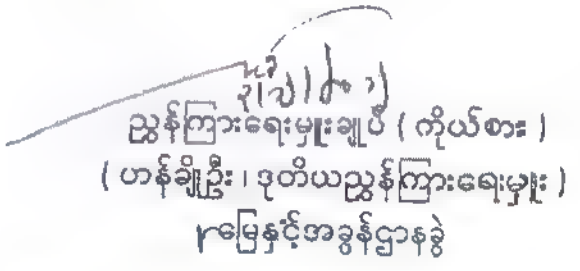 ညွှန်ကြားရေးမှူးချုပ် ( ကိုယ်စား )
( ဟန်ချိုဦး ၊ ဒုတိယညွှန်ကြားရေးမှူး )
မြေနှင့်အခွန်ဌာနခွဲ